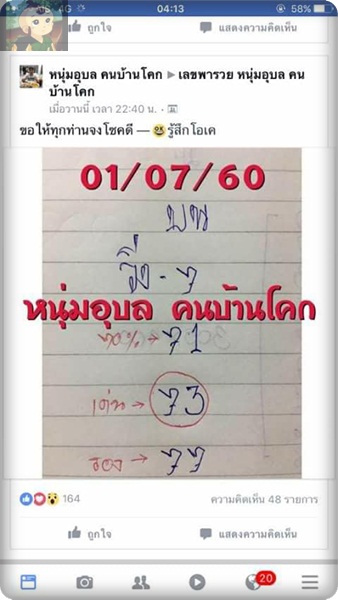 4G
04:13
58%
ถูกใจ
แสดงความคิดเห็น
หนุ่มอุบล คนบ้านโคก ▶ เลขพารวย หนุ่มอุบล คน
บ้านโคก
เมื่อวานนี้ เวลา 22:40 น. ·
ขอให้ทุกท่านจงโชคดี — 😄 รู้สึกโอเค
01/07/60
บน
วิ่ง - 7
หนุ่มอุบล คนบ้านโคก
70% → 71
เด่น → 73
รอง → 77
164
ความคิดเห็น 48 รายการ
ถูกใจ
แสดงความคิดเห็น
20